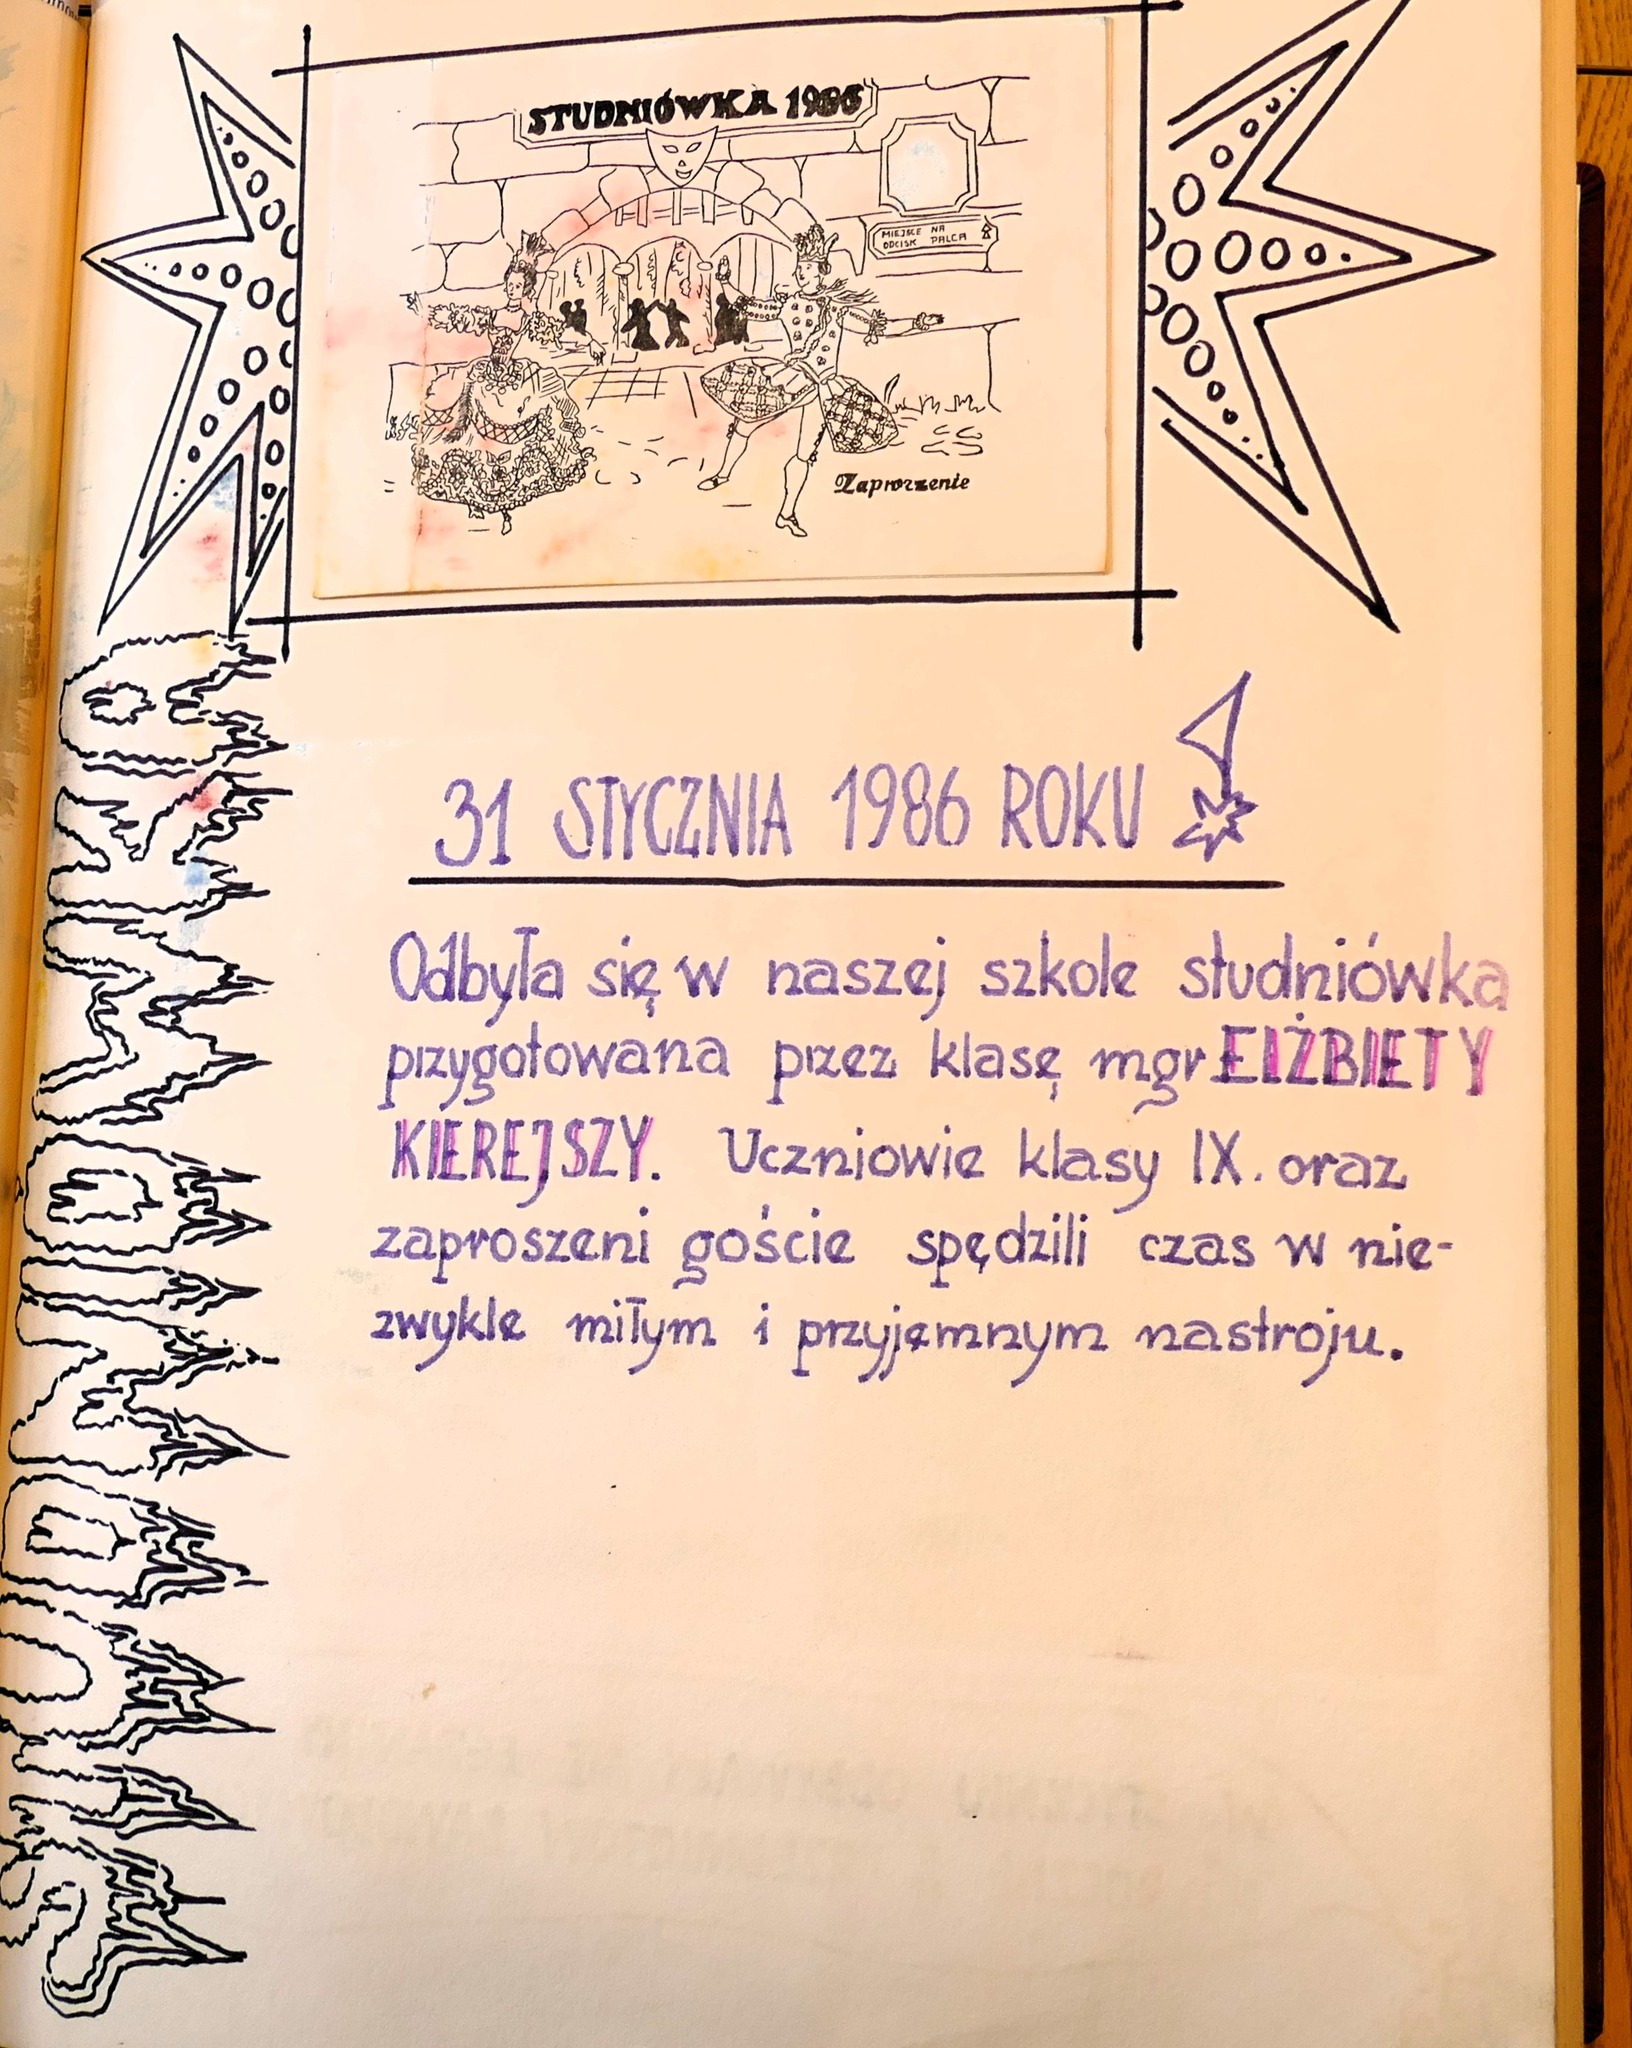 STUDNIÓWKA 1986
MIEJSCE NA
ODCISK PALCA
Zaproszenie
STUDNIÓWKA
31 STYCZNIA 1986 ROKU
Odbyła się w naszej szkole studniówka
przygotowana przez klasę mgr ELŻBIETY
KIEREJSZY. Uczniowie klasy IX. oraz
zaproszeni goście spędzili czas w nie-
zwykle miłym i przyjemnym nastroju.